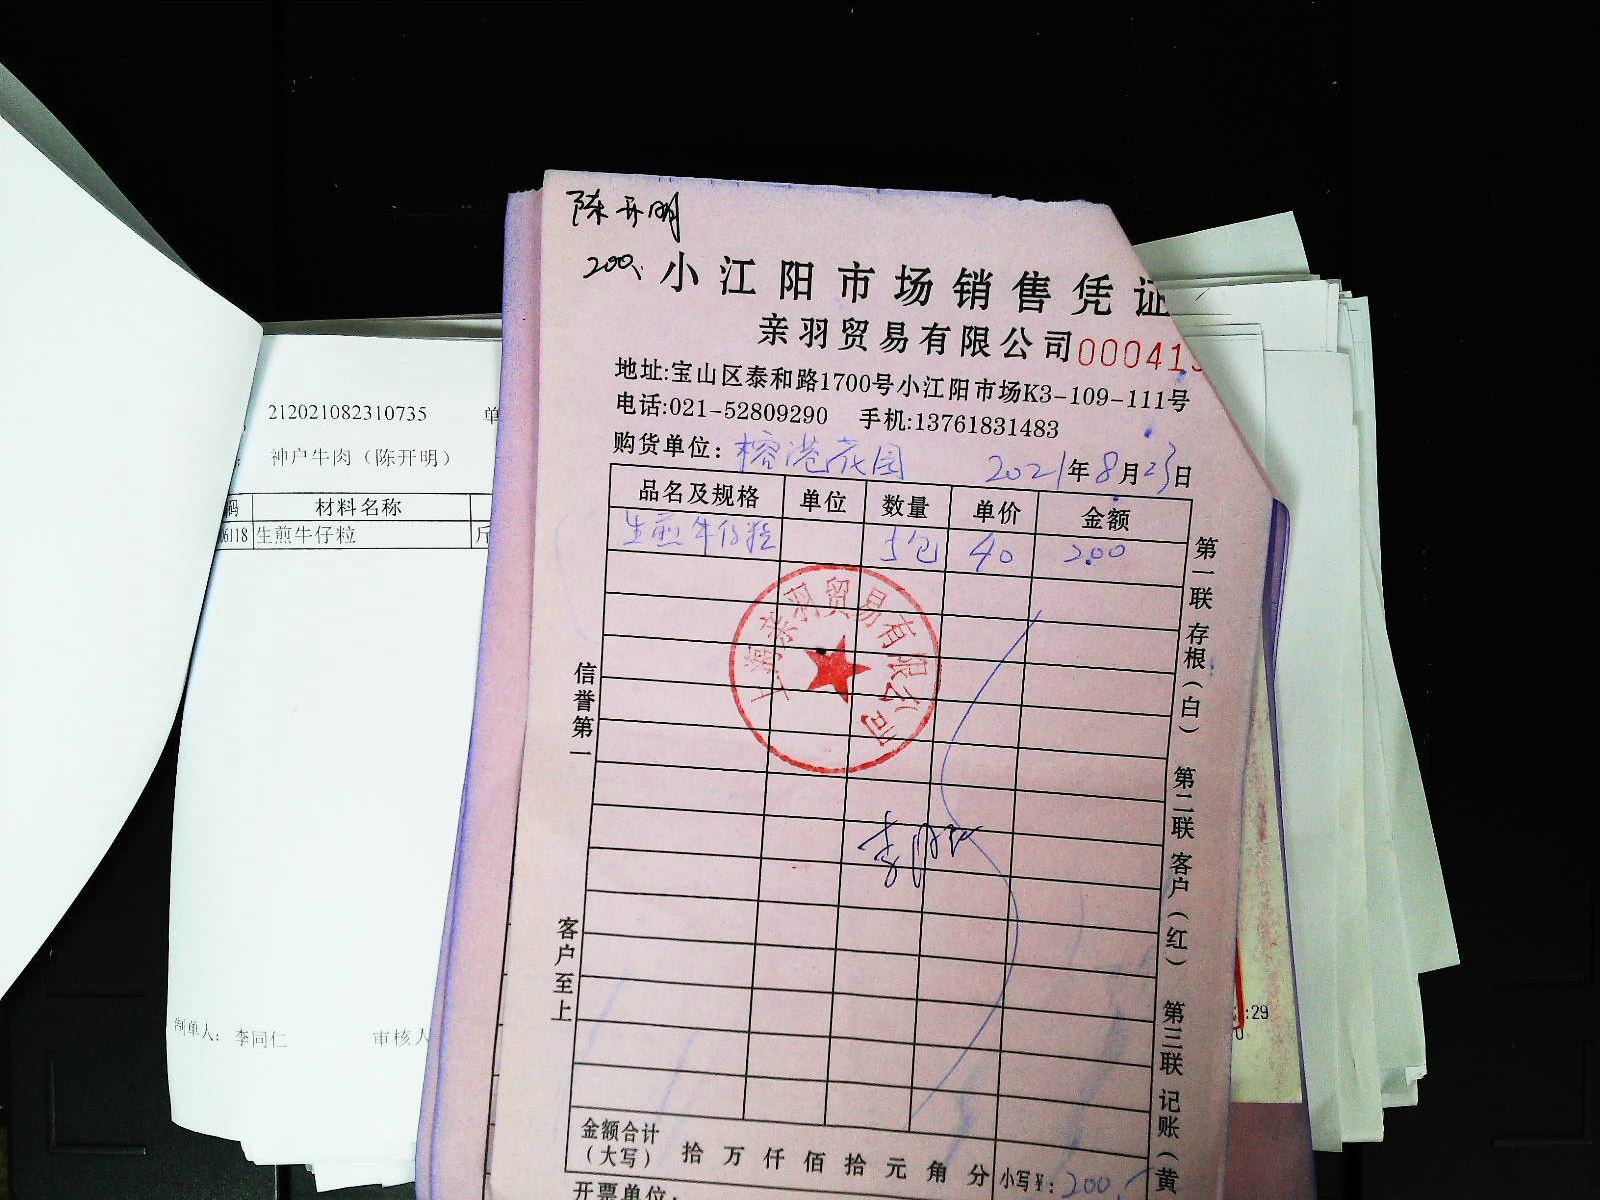 陈开明
200
小江阳市场销售凭证
亲羽贸易有限公司 00041
地址:宝山区泰和路1700号小江阳市场K3-109-111号
电话:021-52809290 手机:13761831483
购货单位: 榕港花园 2021年8月23日
品名及规格 单位 数量 单价 金额
生煎牛仔粒 5包 40 200
上海亲羽贸易有限公司
信誉第一
客户至上
第一联 存根(白) 第二联 客户(红) 第三联 记账(黄
金额合计
(大写) 拾 万 仟 佰 拾 元 角 分 小写¥: 200
开票单位:
212021082310735 单
神户牛肉（陈开明）
码 材料名称
6118 生煎牛仔粒 斤
制单人: 李同仁 审核人
:29